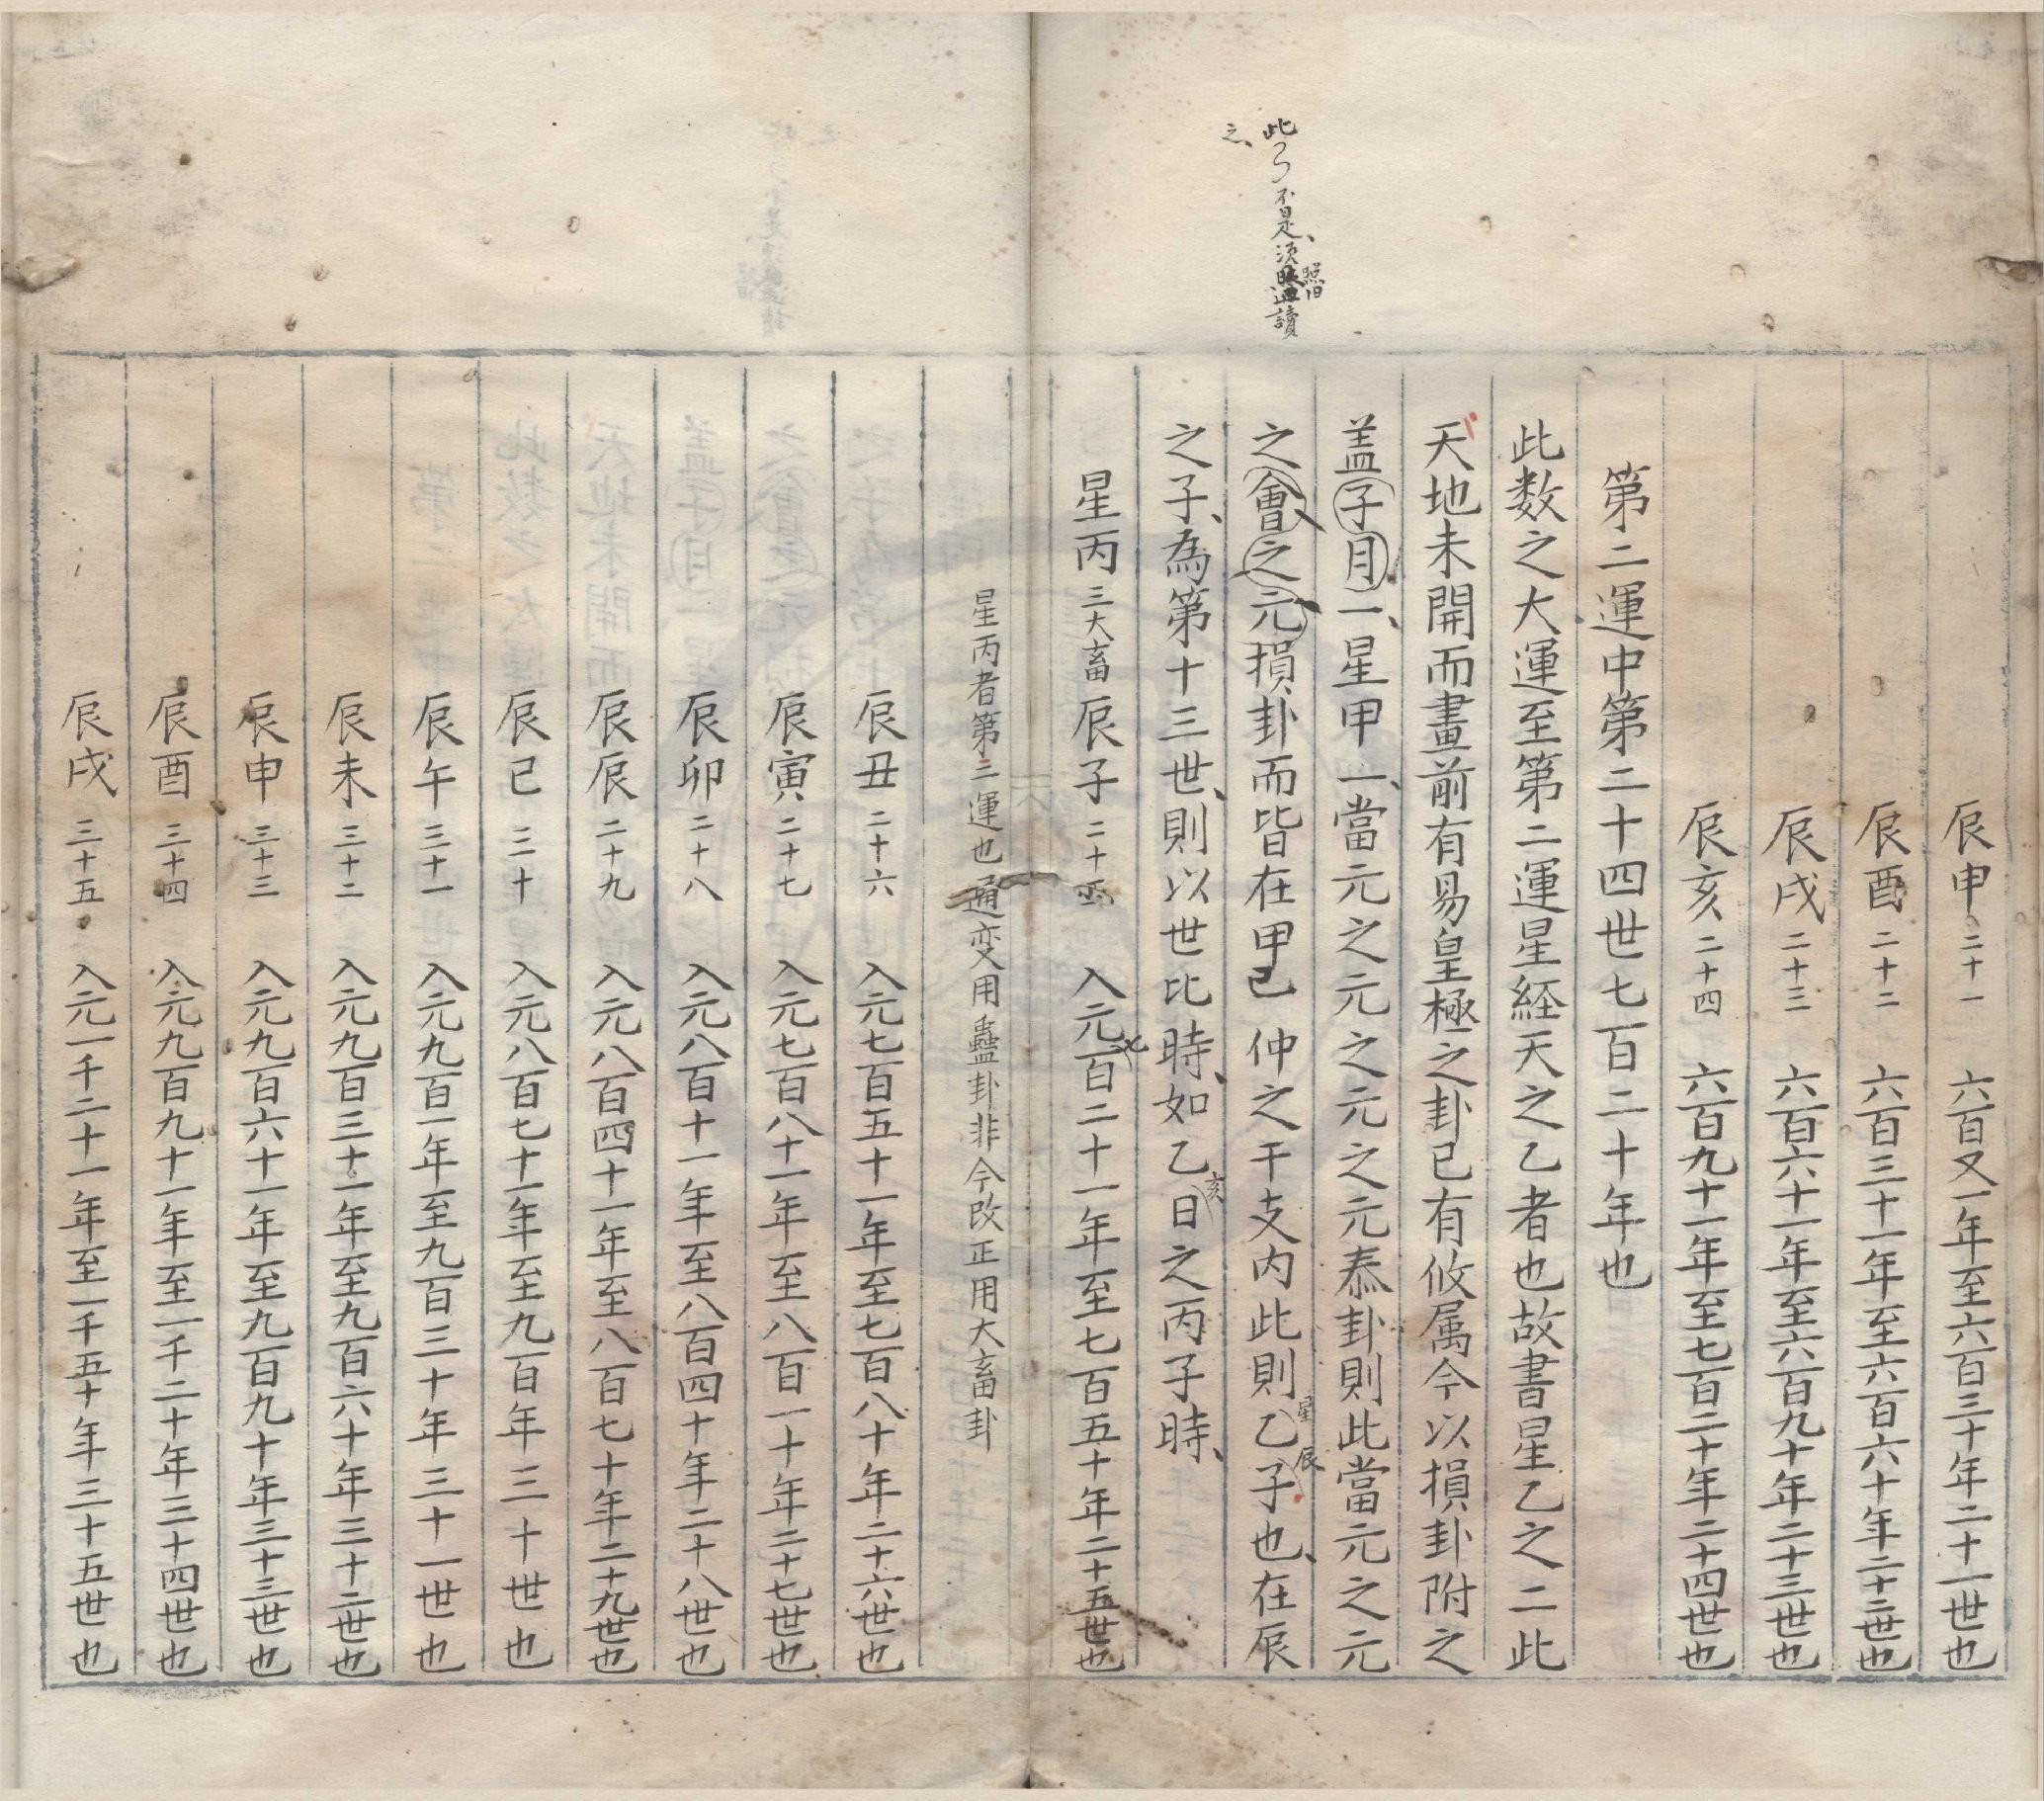 此不是、須照旧讀
之、
辰申 二十一 六百又一年至六百三十年二十一世也
辰酉 二十二 六百三十一年至六百六十年二十二世也
辰戌 二十三 六百六十一年至六百九十年二十三世也
辰亥 二十四 六百九十一年至七百二十年二十四世也
第二運中第二十四世七百二十年也
此数之大運至第二運星経天之乙者也故書星乙之二此
天地未開而畫前有易皇極之卦已有攸属今以損卦附之
盖子月一、星甲一、當元之元之元之元泰卦則此當元之元
之會之元損卦而皆在甲己仲之干支内此則星乙辰子也、在辰
之子、為第十三世、則以世比時、如乙亥日之丙子時、
星丙 三大畜 辰子 二十五 入元七百二十一年至七百五十年二十五世也
星丙者第三運也通变用蠱卦非今改正用大畜卦
辰丑 二十六 入元七百五十一年至七百八十年二十六世也
辰寅 二十七 入元七百八十一年至八百一十年二十七世也
辰卯 二十八 入元八百十一年至八百四十年二十八世也
辰辰 二十九 入元八百四十一年至八百七十年二十九世也
辰巳 三十 入元八百七十一年至九百年三十世也
辰午 三十一 入元九百一年至九百三十年三十一世也
辰未 三十二 入元九百三十一年至九百六十年三十二世也
辰申 三十三 入元九百六十一年至九百九十年三十三世也
辰酉 三十四 入元九百九十一年至一千二十年三十四世也
辰戌 三十五 入元一千二十一年至一千五十年三十五世也